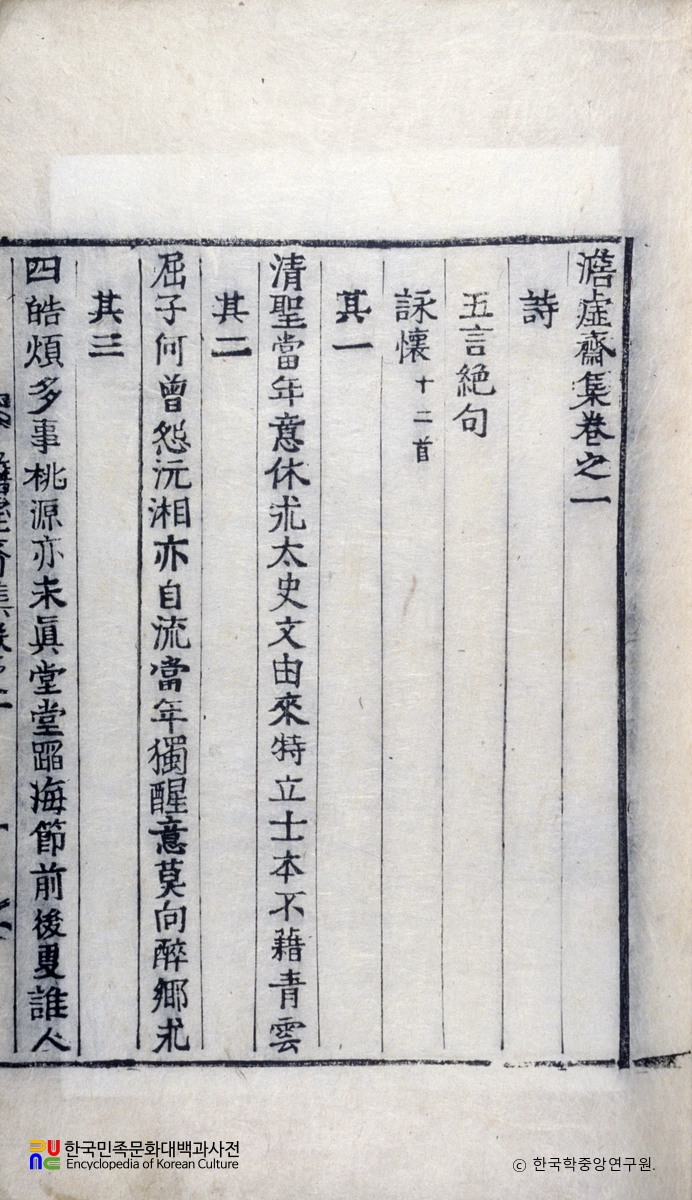 澹虛齋集卷之一
詩
五言絶句
詠懷 十二首
其一
清聖當年意休求太史文由來特立士本不藉青雲
其二
屈子何曾怨沅湘亦自流當年獨醒意莫向醉鄉求
其三
四皓煩多事桃源亦未眞堂堂蹈海節前後更誰人
한국민족문화대백과사전
Encyclopedia of Korean Culture
ⓒ 한국학중앙연구원.